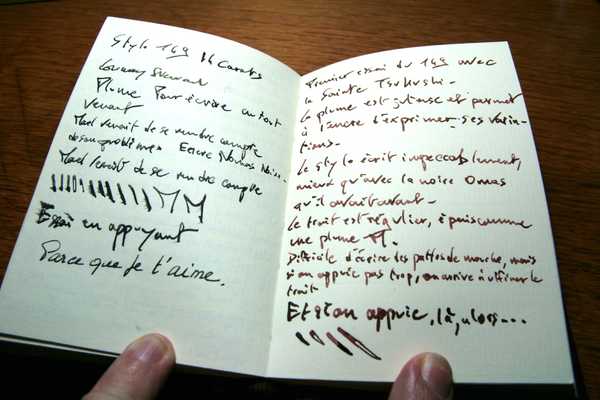 Stylo 149 14 Carats
Plume Pour écrire en tout
venant
Mael venait de se rendre compte
de son problème. Encre Noire
Mael venait de se rendre compte
MM
Essai en appuyant
Parce que je t'aime.
Premier essai du 149 avec
la Sainte Tsukushi.
La plume est juteuse et permet
à l'encre d'exprimer ses varia-
tions.
Le stylo écrit impeccablement,
mieux qu'avec la noire Omas
qu'il avait avant.
Le trait est régulier, épais comme
une plume M.
Difficile d'écrire des pattes de mouche, mais
si on appuie pas trop, on arrive à affiner le
trait
Et si on appuie, là, alors...